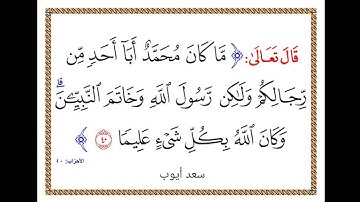 قَالَ تَعَالَىٰ: ﴿ مَّا كَانَ مُحَمَّدٌ أَبَآ أَحَدٖ مِّن
رِّجَالِكُمۡ وَلَٰكِن رَّسُولَ ٱللَّهِ وَخَاتَمَ ٱلنَّبِيِّـۧنَۗ
وَكَانَ ٱللَّهُ بِكُلِّ شَيۡءٍ عَلِيمٗا ٤٠ ﴾
الأحزاب: ٤٠
سعد أيوب